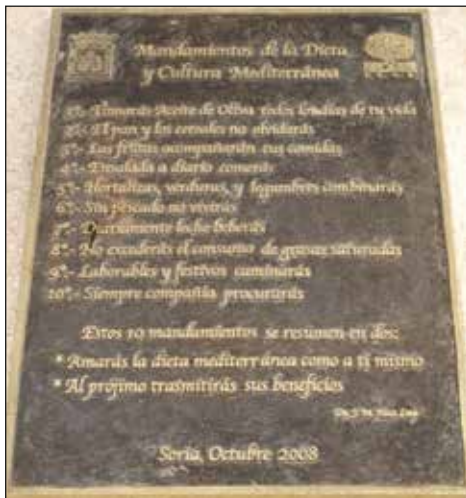 Mandamientos de la Dieta
y Cultura Mediterránea
1º.- Tomarás Aceite de Oliva todos los días de tu vida
2º.- El pan y los cereales no olvidarás
3º.- Las frutas acompañarán tus comidas
4º.- Ensalada a diario comerás
5º.- Hortalizas, verduras, y legumbres combinarás
6º.- Sin pescado no vivirás
7º.- Diariamente leche beberás
8º.- No excederás el consumo de grasas saturadas
9º.- Laborables y festivos caminarás
10º.- Siempre compañía procurarás
Estos 10 mandamientos se resumen en dos:
* Amarás la dieta mediterránea como a ti mismo
* Al prójimo trasmitirás sus beneficios
Soria, Octubre 2008